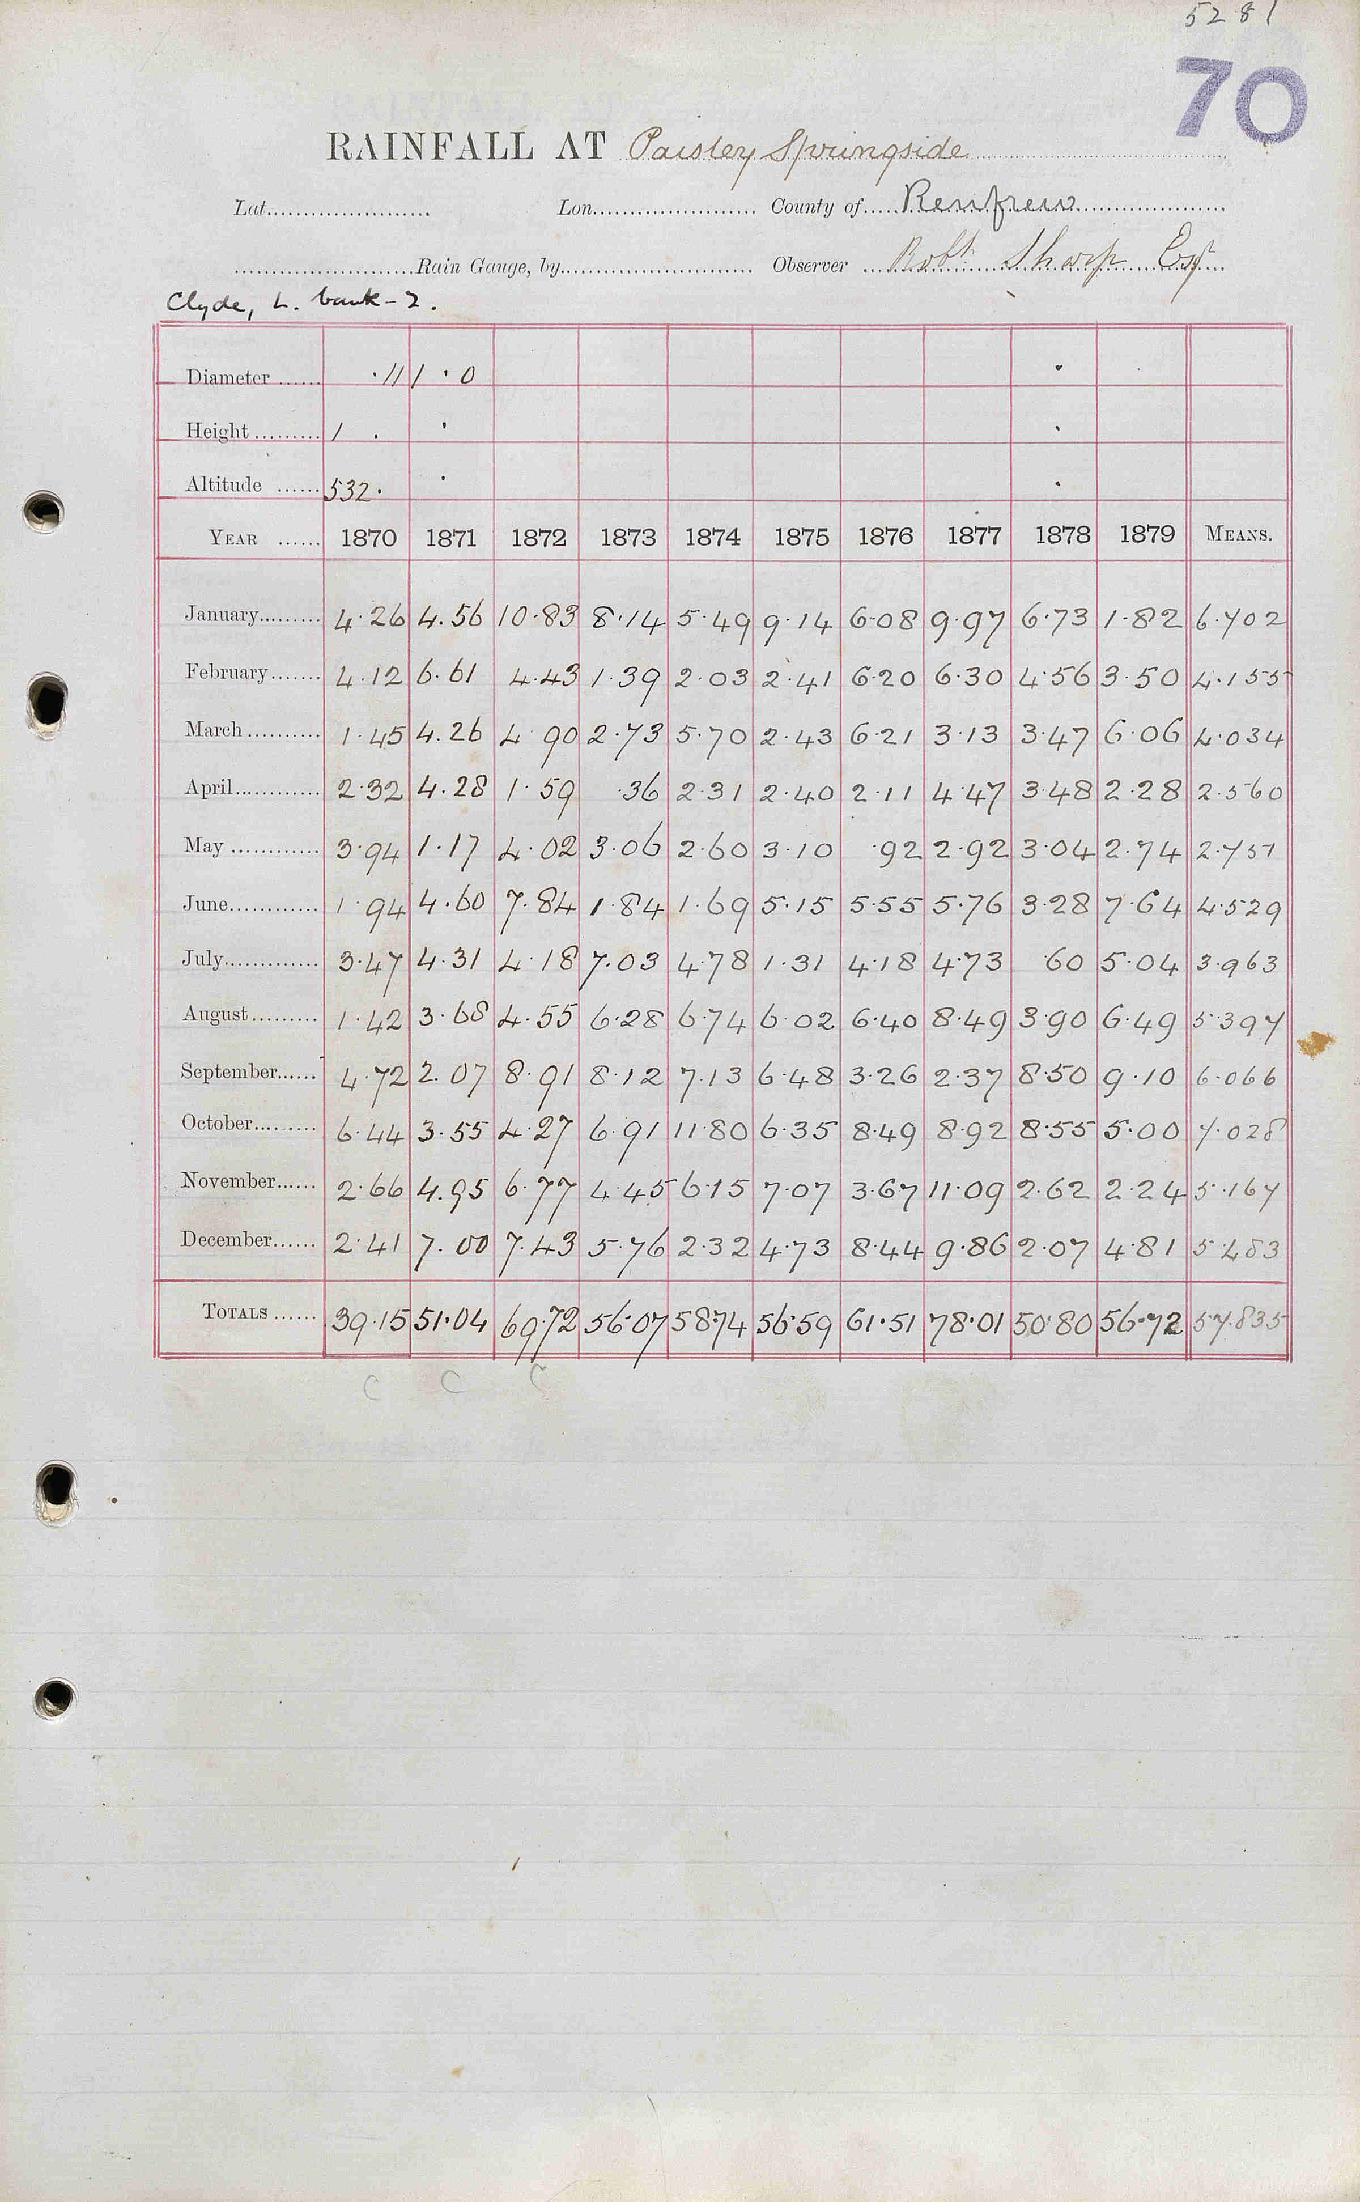 5281
70
RAINFALL AT Paisley Springside
Lat. Lon. County of Renfrew
Rain Gauge, by Observer Robt Sharp Esq
Clyde, L. bank - 2.
Diameter ·11 1·0
Height 1 .
Altitude 532.
YEAR 1870 1871 1872 1873 1874 1875 1876 1877 1878 1879 MEANS.
January 4·26 4.56 10·83 8·14 5·49 9·14 6·08 9·97 6·73 1·82 6·702
February 4·12 6.61 4·43 1·39 2·03 2·41 6·20 6·30 4·56 3·50 4·155
March 1·45 4.26 4·90 2·73 5·70 2·43 6·21 3·13 3·47 6·06 4·034
April 2·32 4.28 1·59 ·36 2·31 2·40 2·11 4·47 3·48 2·28 2·560
May 3·94 1·17 4·02 3·06 2·60 3·10 ·92 2·92 3·04 2·74 2·751
June 1·94 4.60 7·84 1·84 1·69 5·15 5·55 5·76 3·28 7·64 4·529
July 3·47 4.31 4·18 7·03 4·78 1·31 4·18 4·73 ·60 5·04 3·963
August 1·42 3·68 4·55 6·28 6·74 6·02 6·40 8·49 3·90 6·49 5·397
September 4·72 2.07 8·91 8·12 7·13 6·48 3·26 2·37 8·50 9·10 6·066
October 6·44 3·55 4·27 6·91 11·80 6·35 8·49 8·92 8·55 5·00 7·028
November 2·66 4.95 6·77 4·45 6·15 7·07 3·67 11·09 2·62 2·24 5·167
December 2·41 7.00 7·43 5·76 2·32 4·73 8·44 9·86 2·07 4·81 5·483
TOTALS 39·15 51·04 69·72 56·07 58·74 56·59 61·51 78·01 50·80 56·72 57·835
C C C